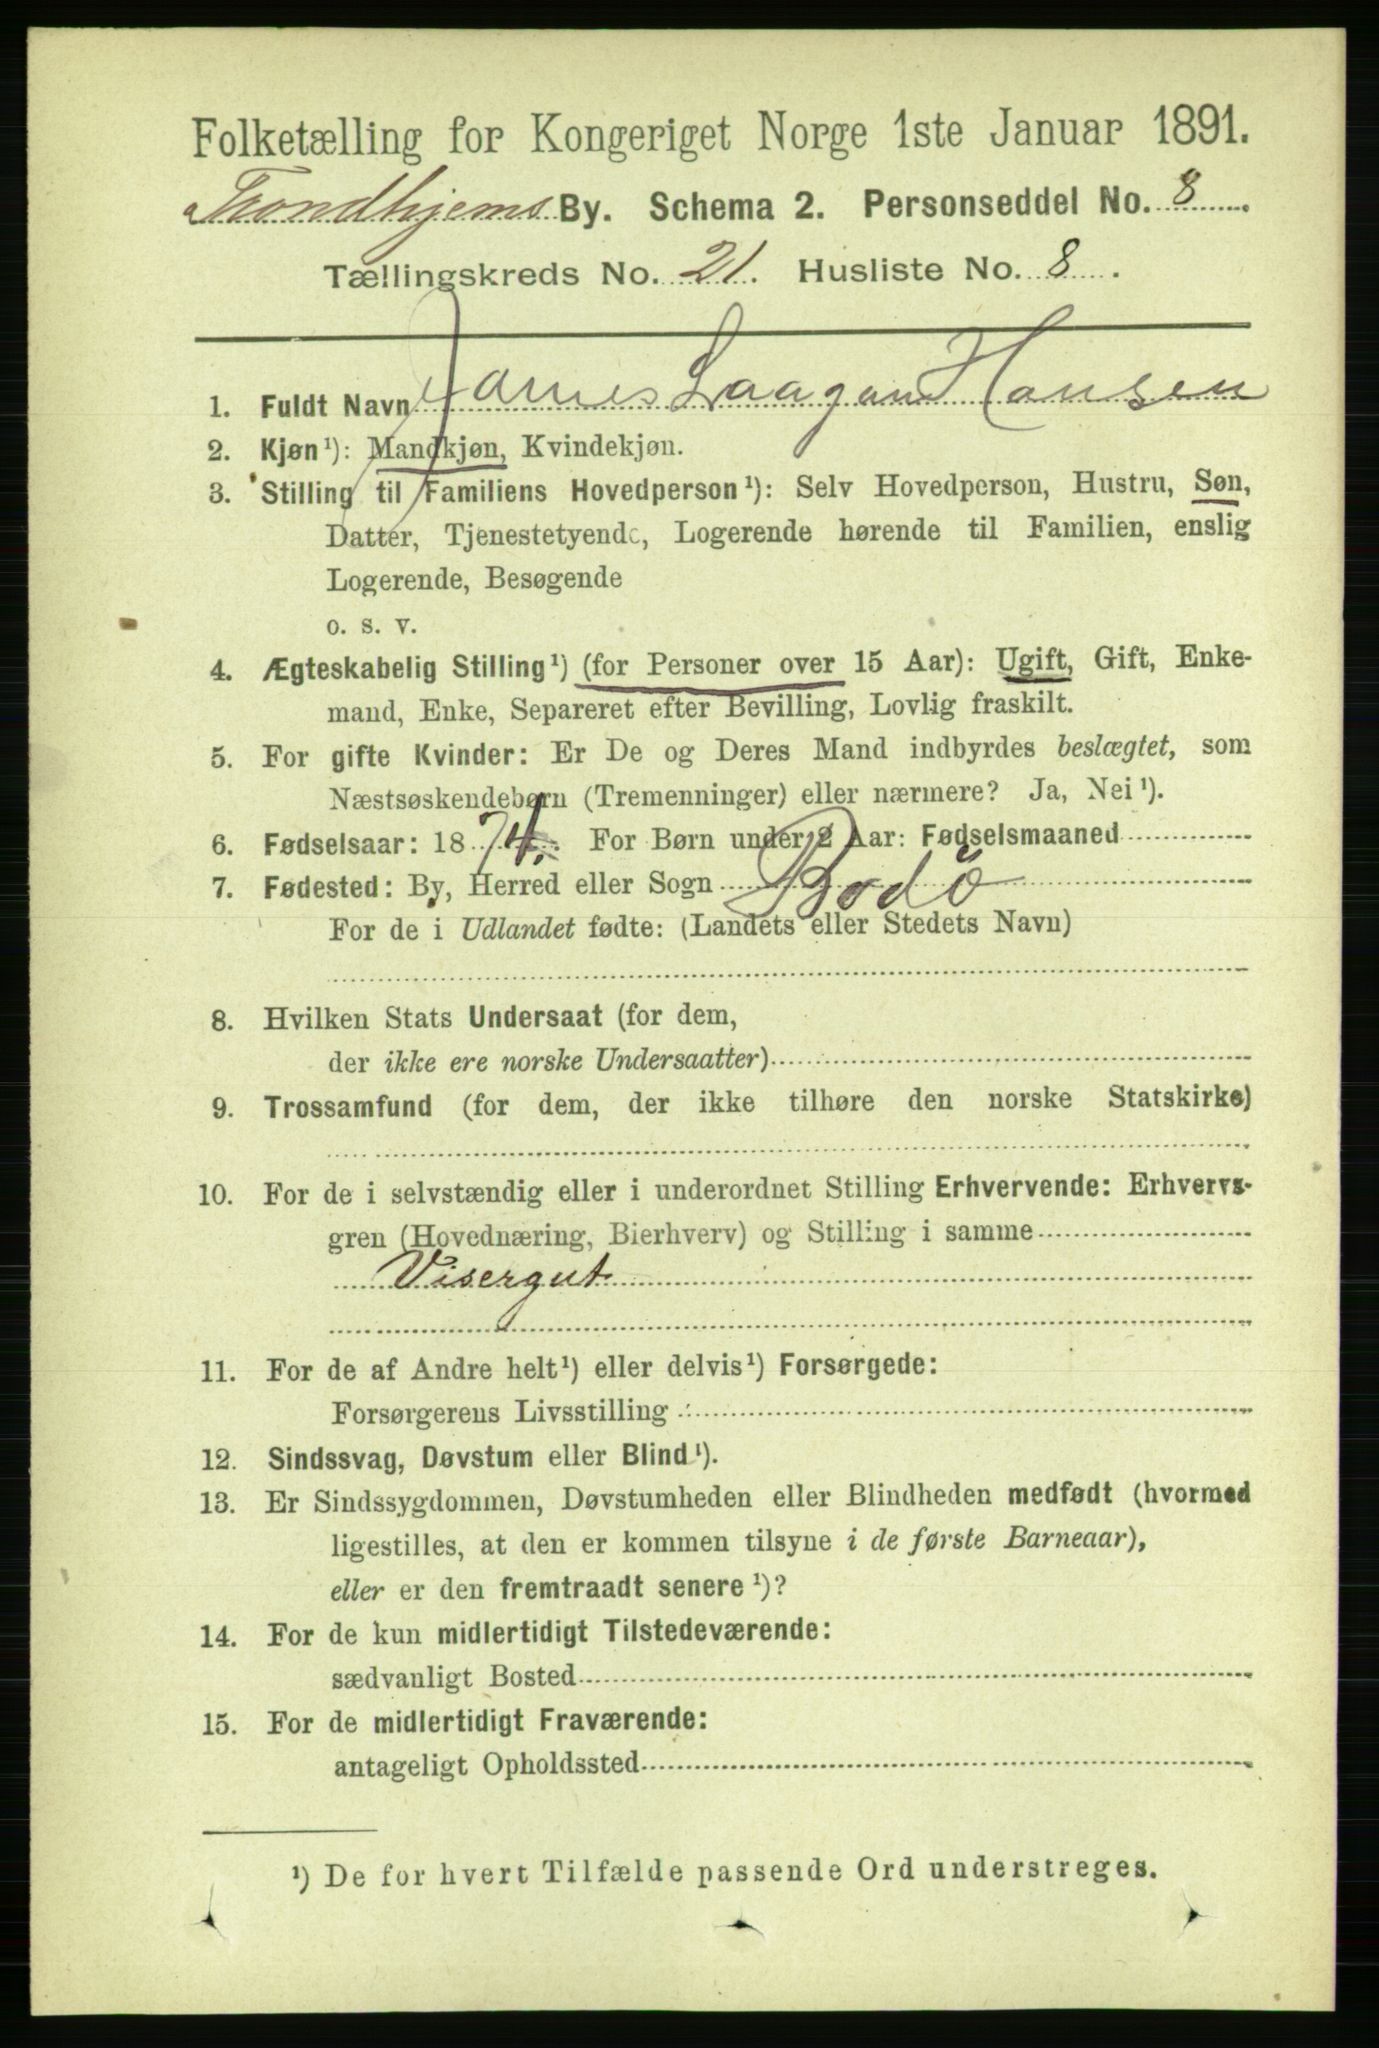 Folketælling for Kongeriget Norge 1ste Januar 1891.
Trondhjems By. Schema 2. Personseddel No. 8.
Tællingskreds No. 21. Husliste No. 8.
1. Fuldt Navn James Laagan Hansen
2. Kjøn¹): Mandkjøn, Kvindekjøn.
3. Stilling til Familiens Hovedperson¹): Selv Hovedperson, Hustru, Søn,
Datter, Tjenestetyende, Logerende hørende til Familien, enslig
Logerende, Besøgende
o. s. v.
4. Ægteskabelig Stilling¹) (for Personer over 15 Aar): Ugift, Gift, Enke-
mand, Enke, Separeret efter Bevilling, Lovlig fraskilt.
5. For gifte Kvinder: Er De og Deres Mand indbyrdes beslægtet, som
Næstsøskendebørn (Tremenninger) eller nærmere? Ja, Nei¹).
6. Fødselsaar: 1874. For Børn under 2 Aar: Fødselsmaaned
7. Fødested: By, Herred eller Sogn Bodö
For de i Udlandet fødte: (Landets eller Stedets Navn)
8. Hvilken Stats Undersaat (for dem,
der ikke ere norske Undersaatter)
9. Trossamfund (for dem, der ikke tilhøre den norske Statskirke)
10. For de i selvstændig eller i underordnet Stilling Erhvervende: Erhvervs-
gren (Hovednæring, Bierhverv) og Stilling i samme
Visergut
11. For de af Andre helt¹) eller delvis¹) Forsørgede:
Forsørgerens Livsstilling
12. Sindssvag, Døvstum eller Blind¹).
13. Er Sindssygdommen, Døvstumheden eller Blindheden medfødt (hvormed
ligestilles, at den er kommen tilsyne i de første Barneaar),
eller er den fremtraadt senere¹)?
14. For de kun midlertidigt Tilstedeværende:
sædvanligt Bosted
15. For de midlertidigt Fraværende:
antageligt Opholdssted
¹) De for hvert Tilfælde passende Ord understreges.